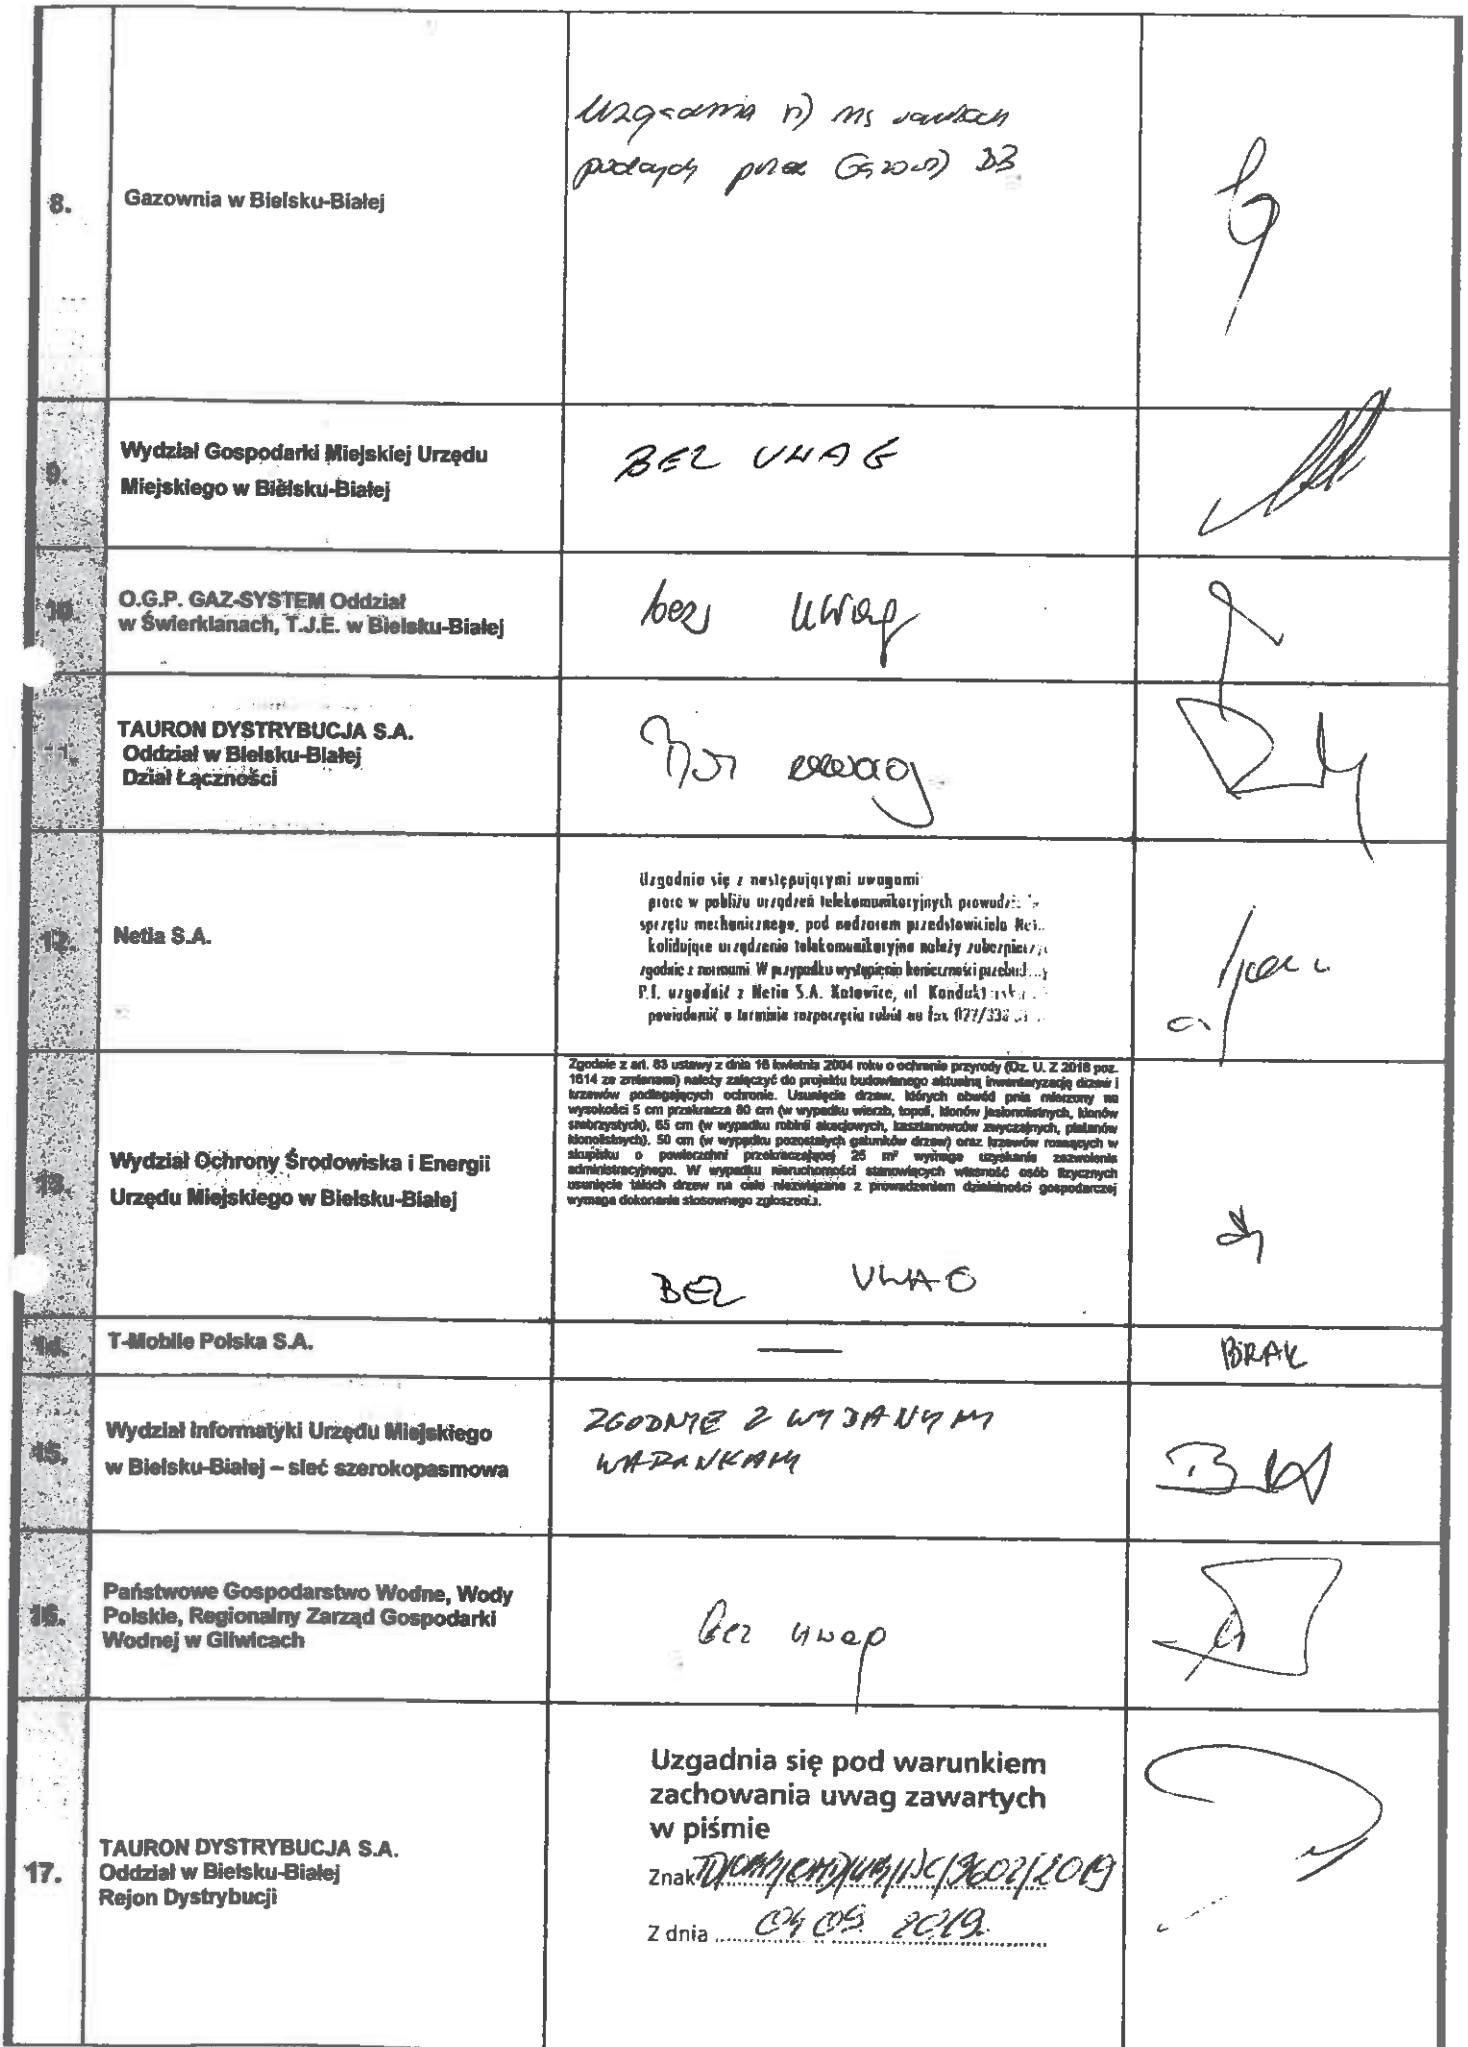 8.
Gazownia w Bielsku-Białej
Uzgadnia
przez
9.
Wydział Gospodarki Miejskiej Urzędu
Miejskiego w Bielsku-Białej
BEZ UWAG
10.
O.G.P. GAZ-SYSTEM Oddział
w Świerklanach, T.J.E. w Bielsku-Białej
bez uwag
11.
TAURON DYSTRYBUCJA S.A.
Oddział w Bielsku-Białej
Dział Łączności
uwag
12.
Netia S.A.
Uzgadnia się z następującymi uwagami
prace w pobliżu urządzeń telekomunikacyjnych
sprzętu mechanicznego, pod nadzorem przedstawiciela
kolidujące urządzenia telekomunikacyjne należy
zgodnie z normami. W przypadku wystąpienia konieczności
P.T. uzgodnić z Netia S.A. Katowice, ul
powiadomić o terminie rozpoczęcia robót na fax
13.
Wydział Ochrony Środowiska i Energii
Urzędu Miejskiego w Bielsku-Białej
Zgodnie z art. 83 ustawy z dnia 16 kwietnia 2004 roku o ochronie przyrody (Dz. U. Z 2018 poz.
1614 ze zmianami) należy załączyć do projektu budowlanego aktualną inwentaryzację drzew i
krzewów podlegających ochronie. Usunięcie drzew, których obwód pnia mierzony na
wysokości 5 cm przekracza 80 cm (w wypadku wierzb, topoli, klonów jesionolistnych, klonów
srebrzystych), 65 cm (w wypadku robinii akacjowych, kasztanowców zwyczajnych, platanów
klonolistnych), 50 cm (w wypadku pozostałych gatunków drzew) oraz krzewów rosnących w
skupisku o powierzchni przekraczającej 25 m² wymaga uzyskania zezwolenia
administracyjnego. W wypadku nieruchomości stanowiących własność osób fizycznych
usunięcie takich drzew na cele niezwiązane z prowadzeniem działalności gospodarczej
wymaga dokonania stosownego zgłoszenia.
BEZ UWAG
14.
T-Mobile Polska S.A.
—
BRAK
15.
Wydział Informatyki Urzędu Miejskiego
w Bielsku-Białej – sieć szerokopasmowa
ZGODNIE Z WYDANYMI
WARUNKAMI
16.
Państwowe Gospodarstwo Wodne, Wody
Polskie, Regionalny Zarząd Gospodarki
Wodnej w Gliwicach
bez uwag
17.
TAURON DYSTRYBUCJA S.A.
Oddział w Bielsku-Białej
Rejon Dystrybucji
Uzgadnia się pod warunkiem
zachowania uwag zawartych
w piśmie
Znak
Z dnia 04 09. 2019.